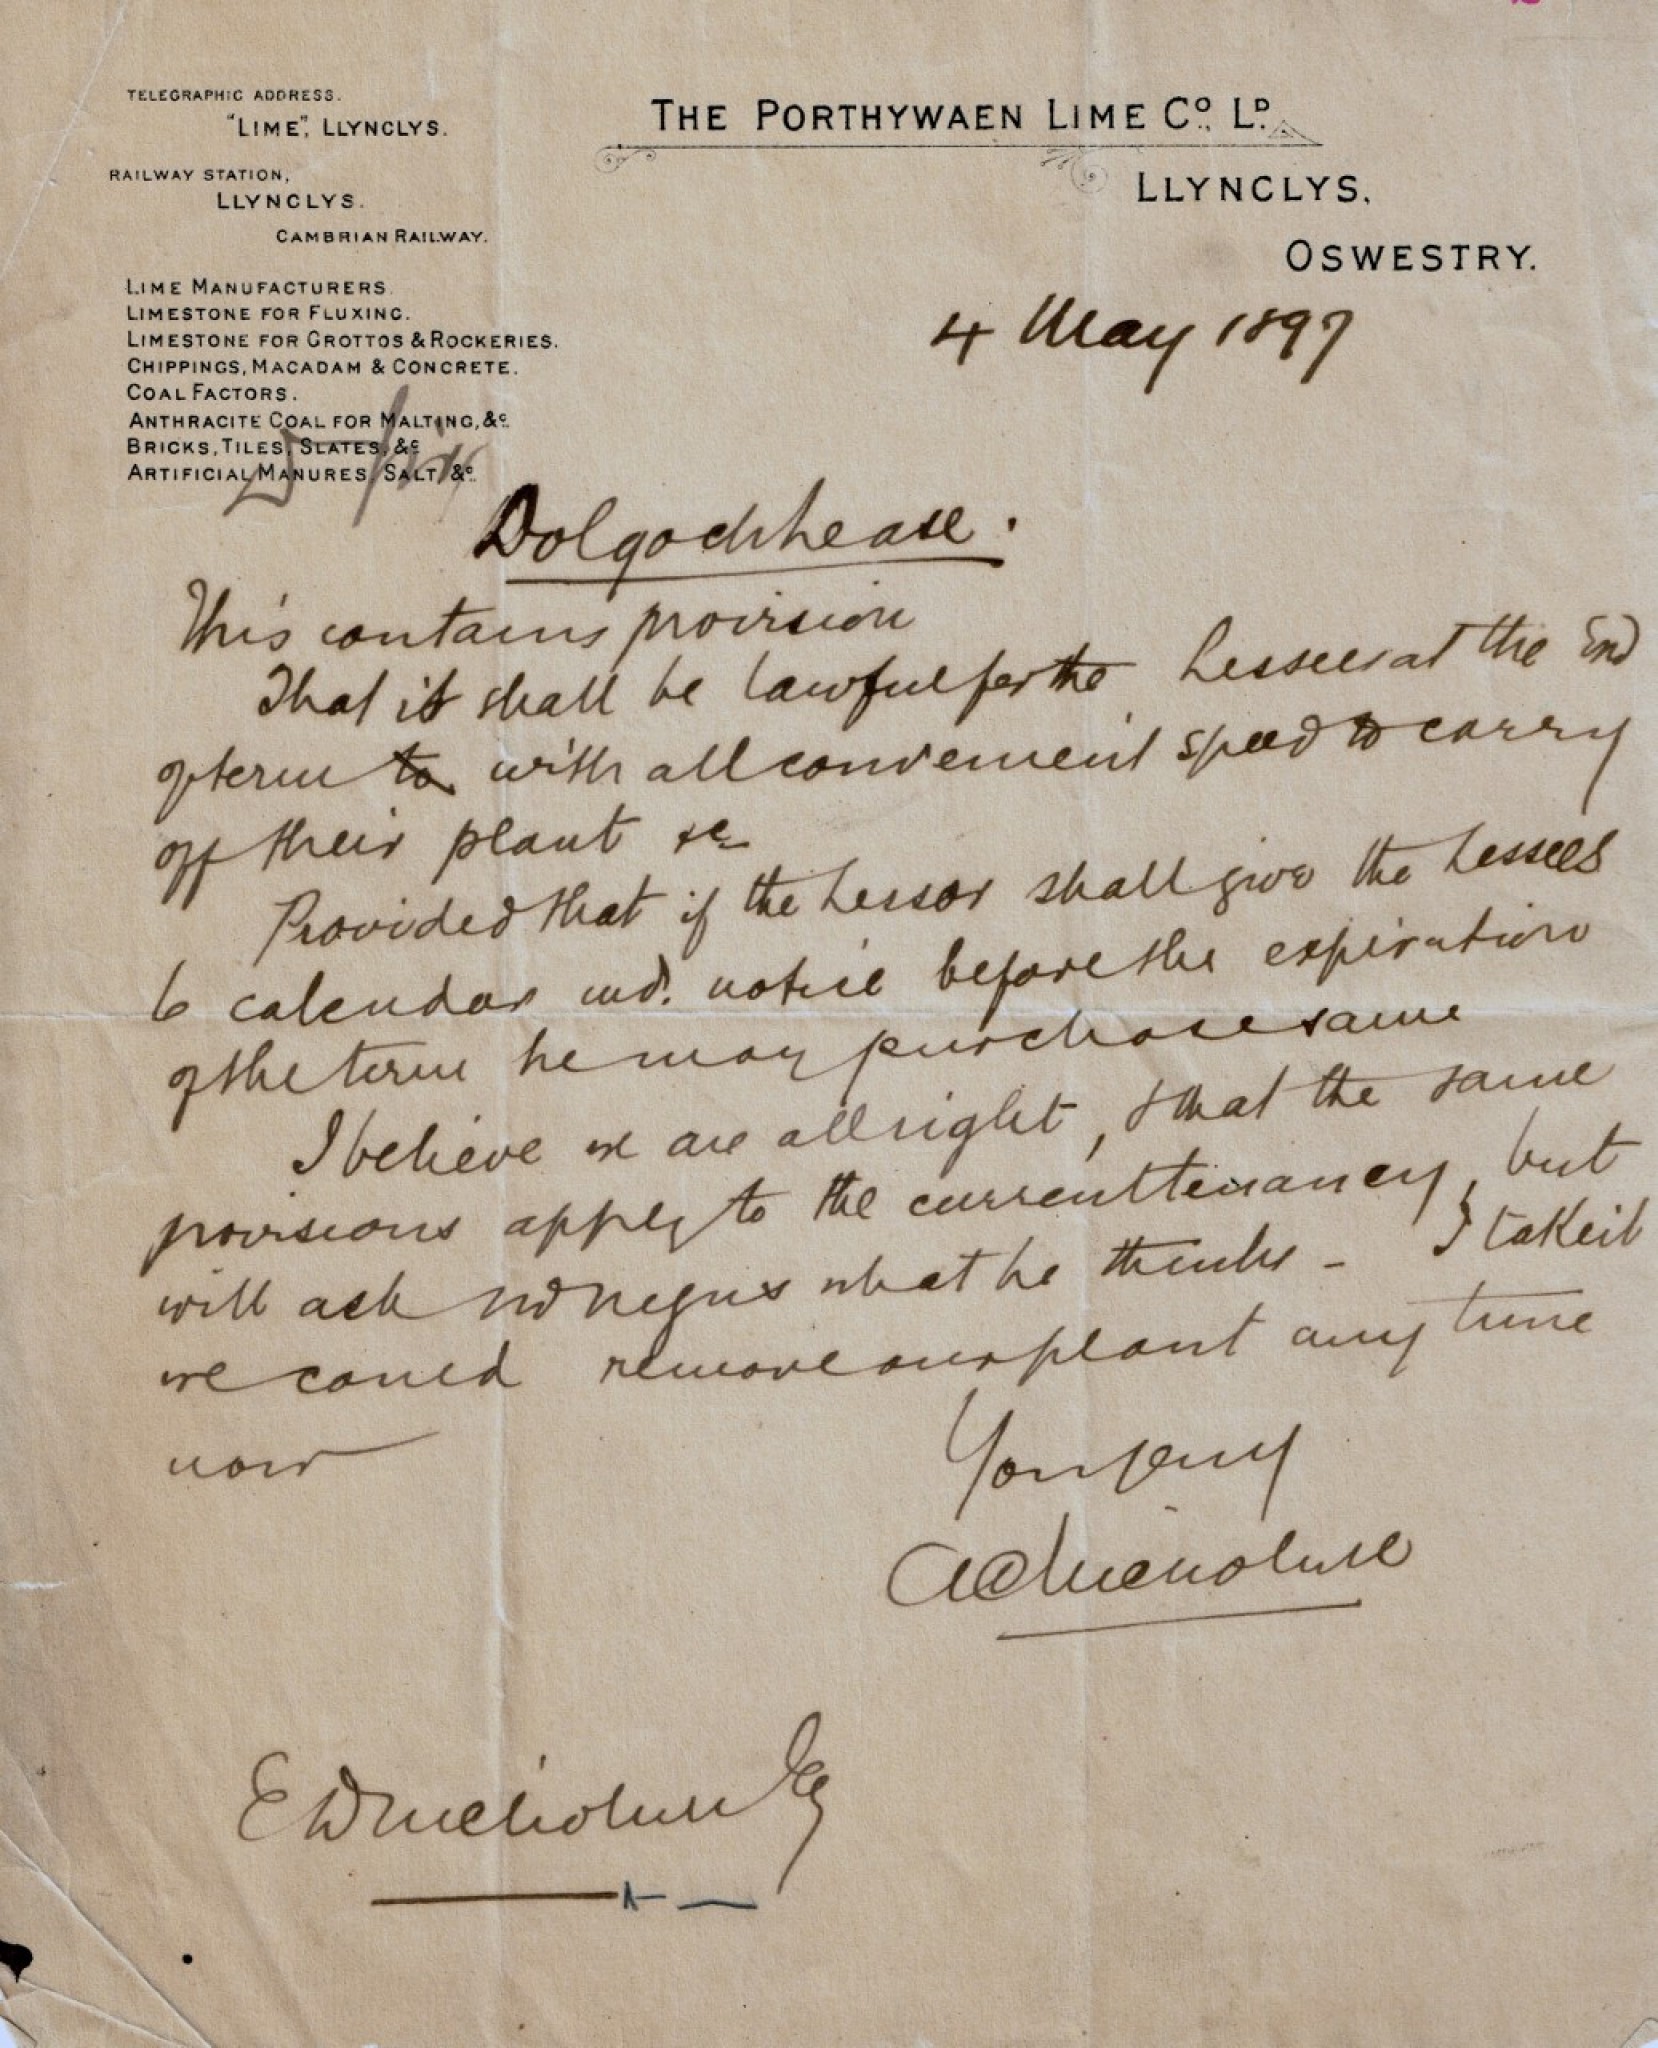 TELEGRAPHIC ADDRESS.
"LIME", LLYNCLYS.
RAILWAY STATION,
LLYNCLYS.
CAMBRIAN RAILWAY.
LIME MANUFACTURERS.
LIMESTONE FOR FLUXING.
LIMESTONE FOR GROTTOS & ROCKERIES.
CHIPPINGS, MACADAM & CONCRETE.
COAL FACTORS.
ANTHRACITE COAL FOR MALTING, &c.
BRICKS, TILES, SLATES, &c
ARTIFICIAL MANURES, SALT, &c.
THE PORTHYWAEN LIME Co., LD.
LLYNCLYS,
OSWESTRY.
4 May 1897
Dolgoch Lease.
This contains provision
That it shall be lawful for the Lessees at the End
of term to with all convenient speed to carry
off their plant &c
Provided that if the Lessor shall give the Lessees
6 calendar notice before the expiration
of the term he may purchase same
I believe we are all right, & that the same
provisions apply to the current tenancy, but
will ask what he thinks - I take it
we could remove our plant any time
now
Yours
E D Nicholson Esq